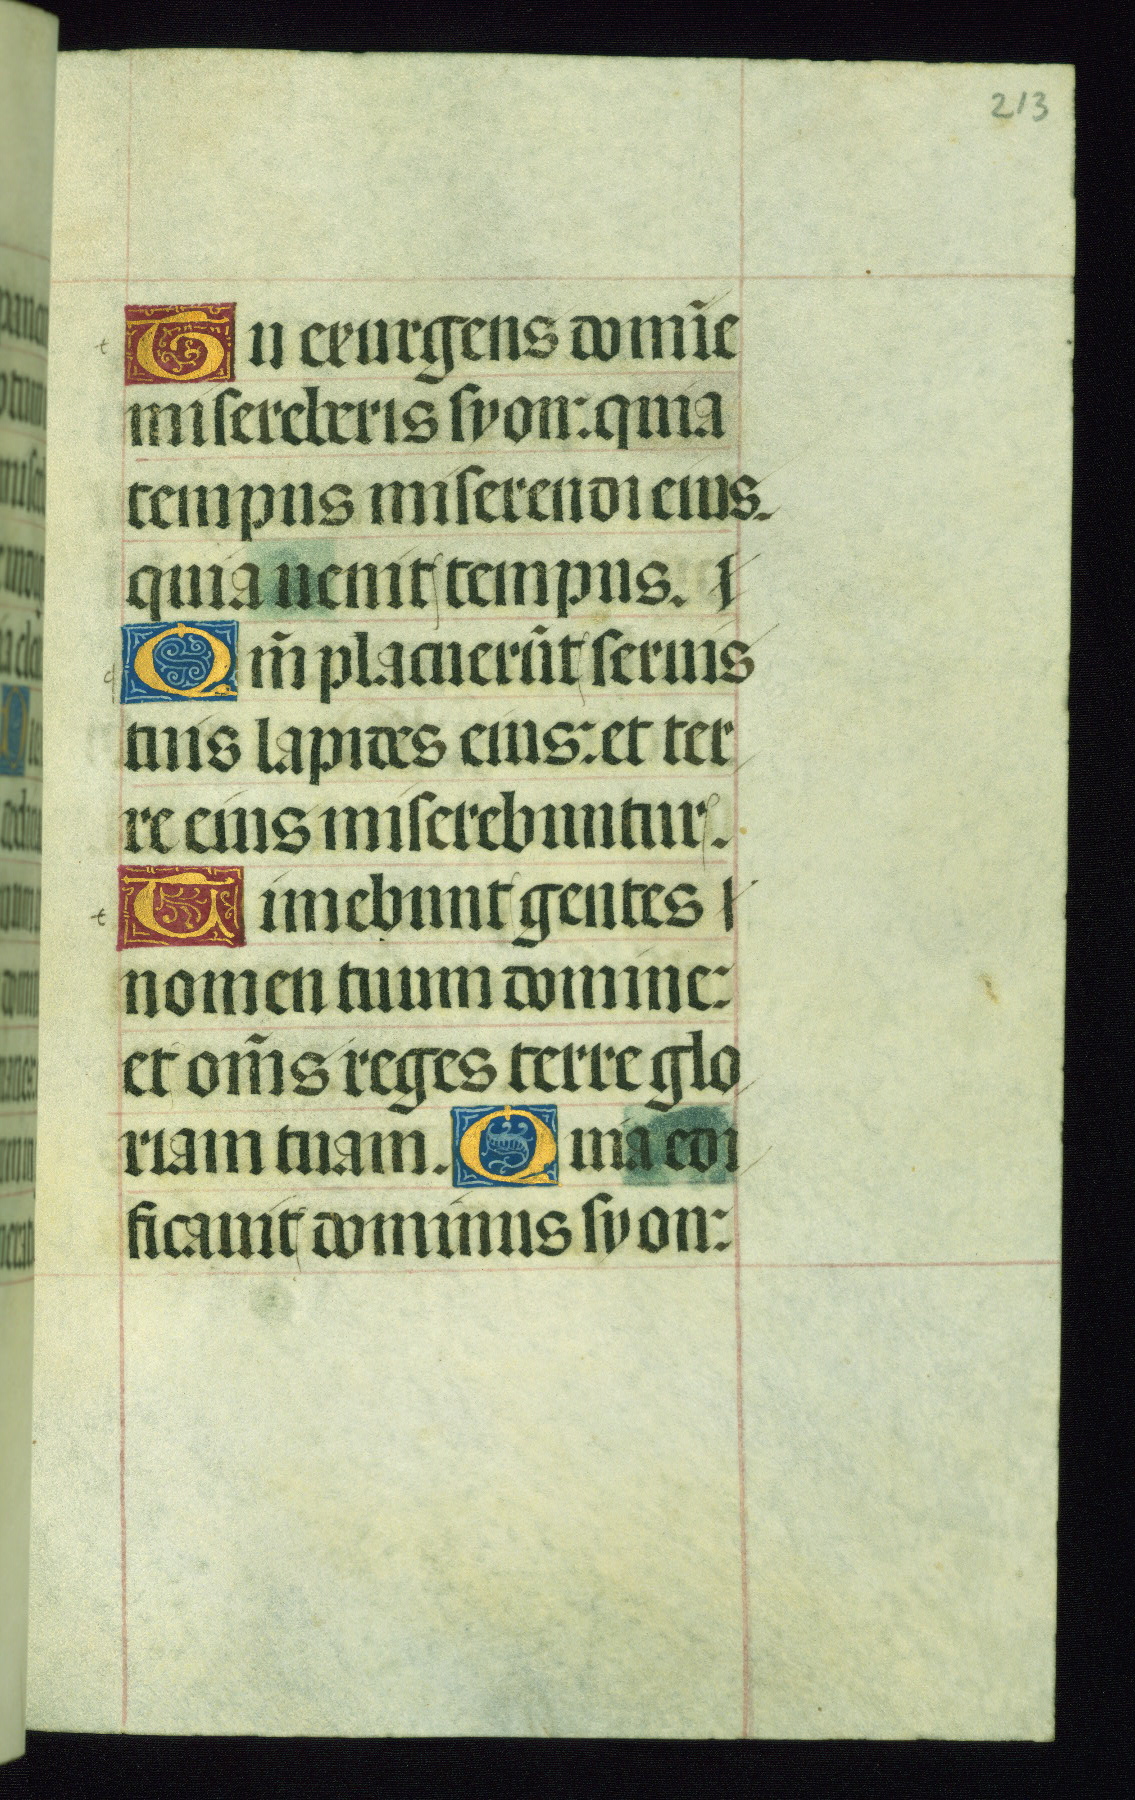 213
t
Tu exurgens domĩe
misereberis syon: quia
tempus miserendi eius.
quia uenit tempus.
q
Qm̃ placuerũt seruis
tuis lapides eius: et ter
re eius miserebuntur.
t
Timebunt gentes
nomen tuum domine:
et om̃s reges terre glo
riam tuam. Quia edi
ficauit dominus syon: